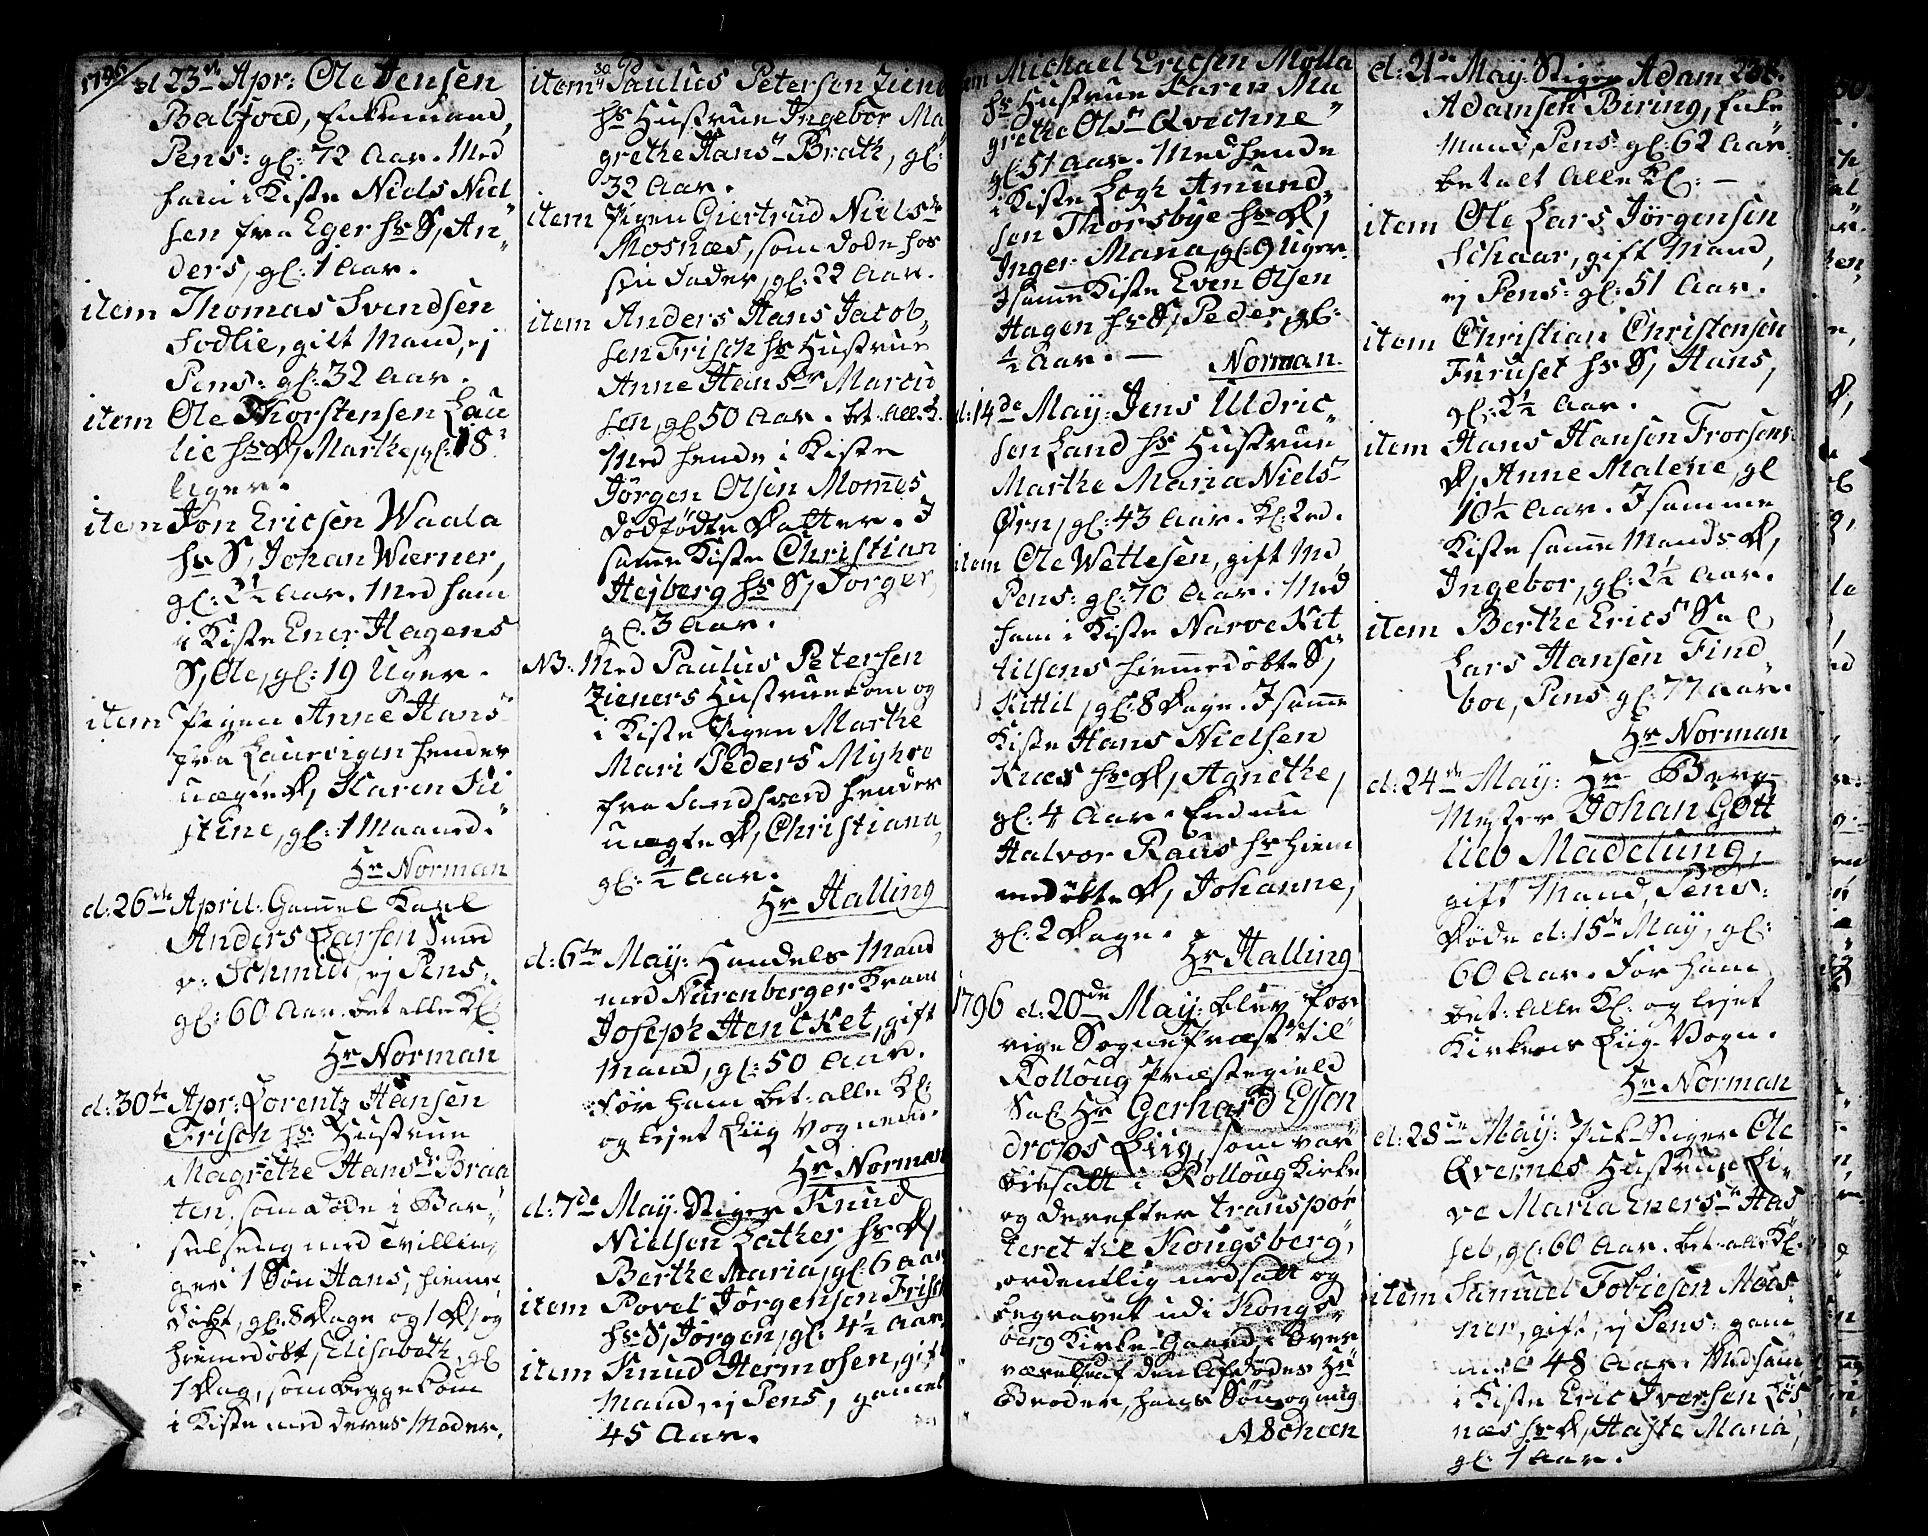 1796
d. 23de Apr: Ole Jensen
Balfoed, Enkemand,
Pens: gl: 72 Aar. Med
ham i Kiste Niels Niel"
sen fra Eger hs S, An"
ders, gl: 1 Aar.
item Thomas Svendsen
Fodlie, gift Mand, ej
Pens: gl: 32 Aar.
item Ole Thorstensen Lau
lie hs D, Marthe, gl: 18
Uger.
item Jon Ericsen Waala
hs S, Johan Wærner,
gl: 2½ Aar. Med ham
i Kiste Ener Hagens
S, Ole, gl: 19 Uger.
item Pigen Anne Hans
fra Laurvigen hendes
uægte D, Karen Ki
stine, gl: 1 Maaned.
Hr Norman
d: 26de April: Gammel Karl
Anders Larsen Smed
v: Schmidt, ej Pens:
gl: 60 Aar. bet alle Kl:
Hr Norman
d: 30te Apr: Lorentz Hansen
Frisch hs Hustrue
Magrethe Hansdr Braa
ten, som døde i Bar"
selseng med Tvillin"
ger 1 Søn Hans, hieme
døbt, gl: 8 Dage og 1 D, og
hiemedøbt, Elisabeth, gl
1 Dag, som begge kom
i Kiste med deres Moder.
item 30/4 Paulus Petersen Ziener
hs Hustrue Ingebor Ma
grethe Hansdr Brath, gl:
32 Aar.
item Pigen Giertrud Nielsdr
Mosnæs, som døde hos
sin Fader, gl: 22 Aar.
item Anders Hans Jacob"
sen Frisch hs Hustrue
Anne Hansdr Marcu
sen, gl 50 Aar. bet. alle K.
Med hende i Kiste
Jørgen Olsen Momes
dødfødte Datter. I
samme Kiste Christian
Hejberg hs S, Torger,
gl. 3 Aar.
NB: Med Paulus Petersen
Zieners Hustrue kom og
i Kiste Pigen Marthe
Mari Peders Myhre
fra Sandsverd hendes
uægte D, Christiana,
gl: ½ Aar.
Hr Halling
d: 6te May: Handels Mand
med Nürenberger Kram
Joseph Henckel, gift
Mand, gl: 50 Aar.
For ham bet: alle Kl:
og lejet Liig Vognen.
Hr Norman
d: 7de May. Stiger Knud
Nielsen Lather, hs D,
Berthe Maria, gl: 6 Aar
item Povel Jørgensen Frisch
hs S, Jørgen, gl: 4½ Aar
item Knud Hermosen, gift
Mand, ej Pens, gamel
45 Aar.
item Michael Ericsen Mølla
hs Hustrue Karen Ma"
grethe Olsdr Qvechne"
gl: 51 Aar. Med hende
i Kiste Logh Amund"
sen Thorsbye hs D,
Inger Maria, gl: 9 Uger.
I samme Kiste Even Olsen
Hagen hs S, Peder, gl:
½ Aar. —
Norman
d: 14de May: Jens Uldric"
sen Land hs Hustrue
Marthe Maria Niels
Ørn, gl: 43 Aar. Kl: 2 ed.
item Ole Wetlesen, gift Md,
Pens: gl: 70 Aar. Med
ham i Kiste Narve Kit
tilsens hiemmedøbte S,
Kittil, gl: 8 Dage. I samme
Kiste Hans Nielsen
Knæs hs D, Agnethe,
gl: 4 Aar. Endnu
Halvor Raus hs hiem
medøbte D, Johanne,
gl: 2 Dage.
Hr Halling
1796 d: 20de May: blev for
rige Sogne Præst til
Rolloug Præstegield
Sal: Hr Gerhard Essen
drops Liig, som var
biesatt i Rolloug Kirke
og derefter transpor
teret til Kongsberg,
ordentlig nedsatt og
begravet udi Kongs"
berg Kirke Gaard, i Over
værelse af den Afdødes Hr
Broder, hans Søn og mig
A Scheen
238.
d: 21de May. Stiger Adam
Adamsen Biring, Enke
Mand, Pens: gl: 62 Aar.
betalt Alle Kl: —
item Ole Lars Jørgensen
Schaar, gift Mand,
ej Pens: gl: 51 Aar.
item Christian Christensen
Furuset hs S, Hans,
gl: 2½ Aar.
item Hans Hansen Froesens
D, Anne Malene, gl
10½ Aar. I samme
Kiste samme Mands D,
Ingebor, gl: 2½ Aar.
item Berthe Erics Sal
Lars Hansen Find"
boe, Pens gl: 77 Aar.
Hr Norman
d: 24de May: Hr Berg
Mester Johan Gott
lieb Madelung,
gift Mand, Pens:
døde d: 15de May, gl:
60 Aar. For ham
bet: Alle Kl: og lejet
Kirkens Liig-Vogn.
Hr Norman
d: 28de May: Puk-Stiger Ole
Qvernes Hustrue Li"
ve Maria Enersdr Has
seb, gl: 60 Aar. bet: alle Kl:
item Samuel Tobiesen Moes"
ner, gift, ej Pens: gam"
mel 48 Aar. Med ham
i Kiste Eric Iversen Løs
næs hs D, Haste Maria,
gl: 1 Aar.